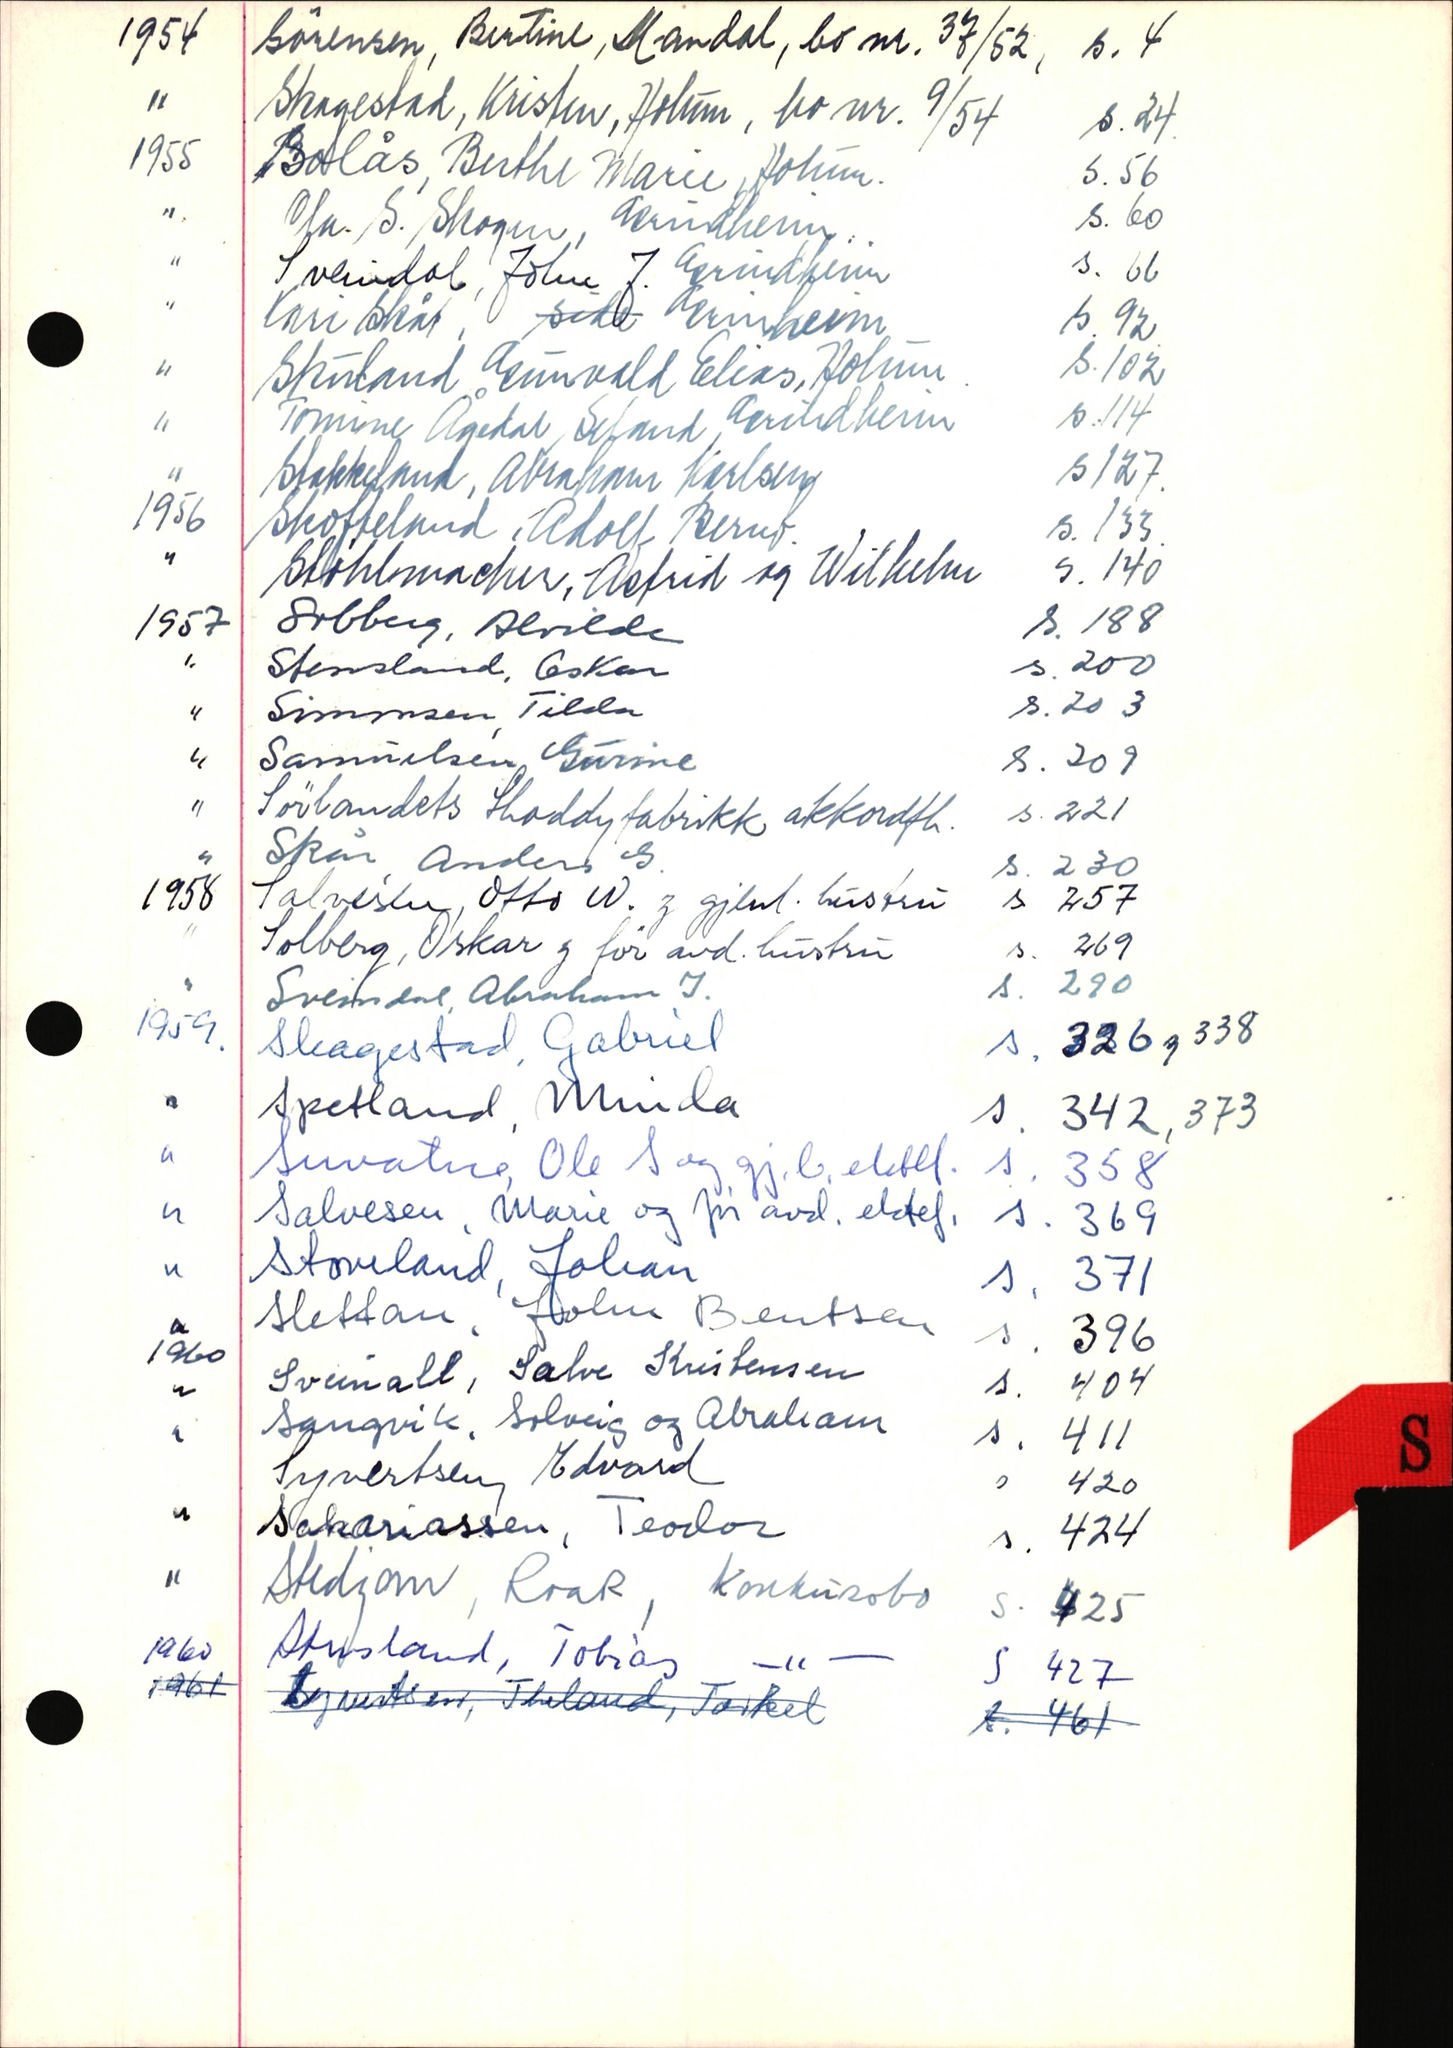 1954 Sörensen, Bertine, Mandal, bo nr. 37/52, s. 4
" Skagestad, Kristen, Holum, bo nr. 9/54 s. 24.
1955 Bolås, Berthe Marie, Holum. s. 56
" S. Skogen, Grindheim. s. 60
" Sveindal, John J. Grindheim s. 66
" Kari Skår, side Grinheim s. 92
" Skuland Gunvald Elias, Holum. s. 102
" Tomine Ågedal, Seland, Grindheim s. 114
" Stakkeland, Abraham Karlsen s 127.
1956 Skoffeland, Adolf Bernt. s. 133.
" Stöhlmacher, Astrid og Wilhelm s. 140
1957 Solberg, Alvilde s. 188
" Stensland, Oskar s. 200
" Simonsen, Tilda s. 203
" Samuelsen, Gurine s. 209
" Sörlandets Shoddyfabrikk, akkordfh. s. 221
" Skår, Anders G. s. 230
1958 Salvesen, Otto W. og gjenl. hustru s 257
" Solberg, Oskar og för avd. hustru s. 269
" Sveindal, Abraham J. s. 290
1959. Skagestad, Gabriel s. 326 og 338
" Spetland, Minda s. 342, 373
" Ole S og gj.l. ektef. s. 358
" Salvesen, Marie og før avd. ektef. s. 369
" Stoveland, Johan s. 371
" Slettan, John Bentsen s. 396
1960
" Sveinall, Salve Kristensen s. 404
" Sangvik, Solveig og Abraham s. 411
Syvertsen, Edvard s 420
" Sakariassen, Teodor s. 424
" Stedjom, Roar, Konkursbo s. 425
1960 Stusland, Tobias —"— s 427
1961 Syvertsen, Theland, Torkel s. 461
S